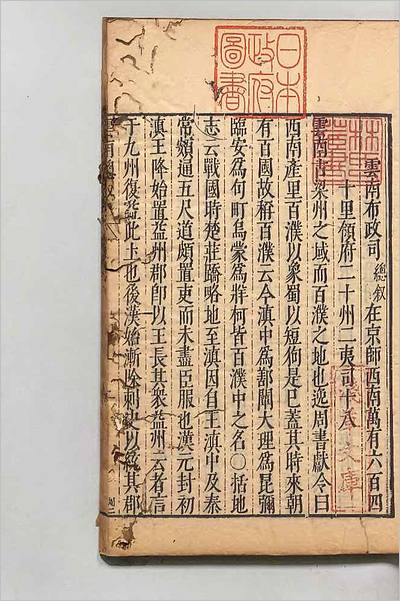 日本
政府
圖書
林
雲南布政司 總叙 在京師西南萬有六百四
十里領府二十州二夷司十八
雲南古梁州之域而百濮之地也逸周書獻令曰
西南產里百濮以象蜀以短狗是巳蓋其時來朝
有百國故稱百濮云今滇中爲鄯闡大理爲昆彌
臨安爲句町烏蒙爲牂柯皆百濮中之名〇括地
志云戰國時楚莊蹻略地至滇因自王滇中及秦
常頞通五尺道頗置吏而未盡臣服也漢元封初
滇王降始置益州郡卽以王長其衆益州云者言
于九州復益此土也後漢始漸除刺史以爲其郡
文庫